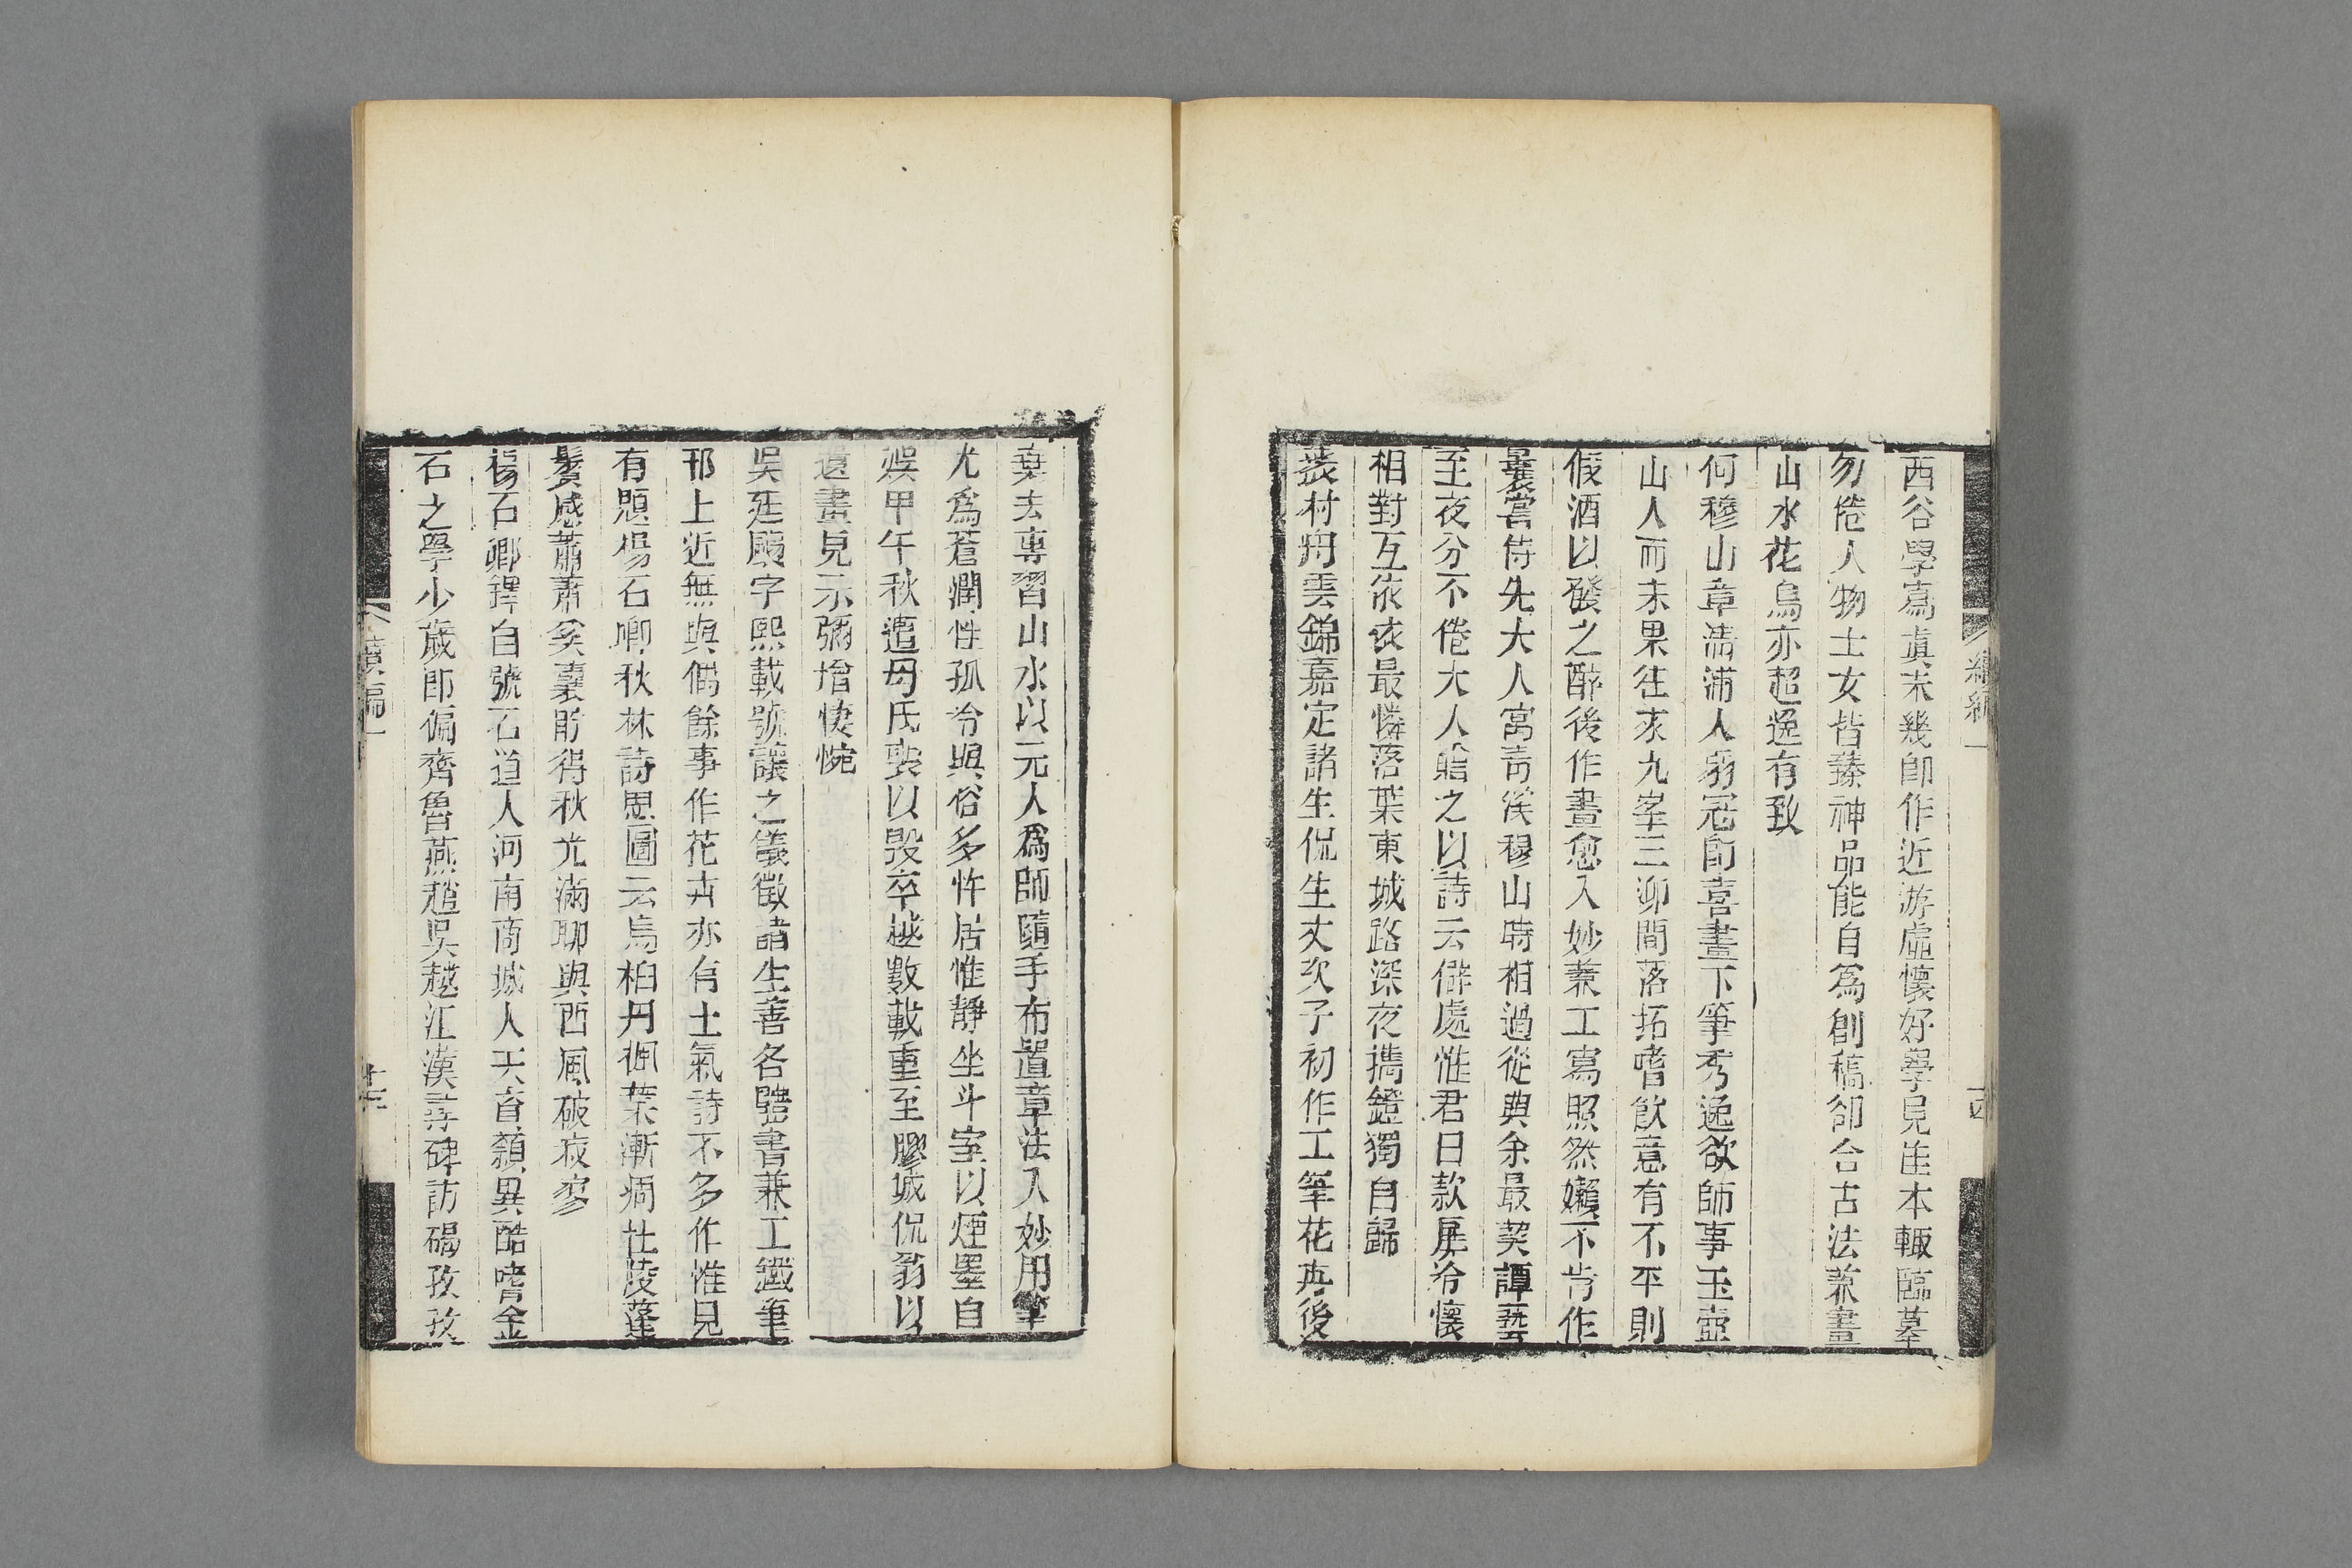 西谷學寫眞未幾卽作近游虛懷好學見佳本輒臨摹
勿倦人物士女皆臻神品能自爲創稿卻合古法兼畫
山水花鳥亦超逸有致
何穆山章淸浦人弱冠卽喜畫下筆秀逸欲師事玉壺
山人而未果往來九峯三泖間落拓嗜飲意有不平則
假酒以發之醉後作畫愈入妙兼工寫照然嬾不肯作
曩嘗侍先大人寓靑溪穆山時相過從與余最契譚藝
至夜分不倦大人贈之以詩云僻處惟君日款扉冷懷
相對互依依最憐落葉東城路深夜攜鐙獨自歸
裴村舟雲錦嘉定諸生侃生丈次子初作工筆花卉後
棄去專習山水以元人爲師隨手布置章法入妙用筆
尤爲蒼潤性孤冷與俗多忤居惟靜坐斗室以煙墨自
娛甲午秋遭母氏喪以毀卒越數載重至膠城侃翁以
遺畫見示彌增悽惋
吳廷颺字熙載號讓之儀徵諸生善各體書兼工鐵筆
邗上近無與儔餘事作花卉亦有士氣詩不多作惟見
有題楊石卿秋林詩思圖云烏桕丹楓葉漸凋杜陵蓬
鬢感蕭蕭奚囊貯得秋光滿聊與西風破寂寥
楊石卿鐸自號石道人河南商城人天資穎異酷嗜金
石之學少歲卽徧齊魯燕趙吳越江漢尋碑訪碣孜孜
續編一
十三